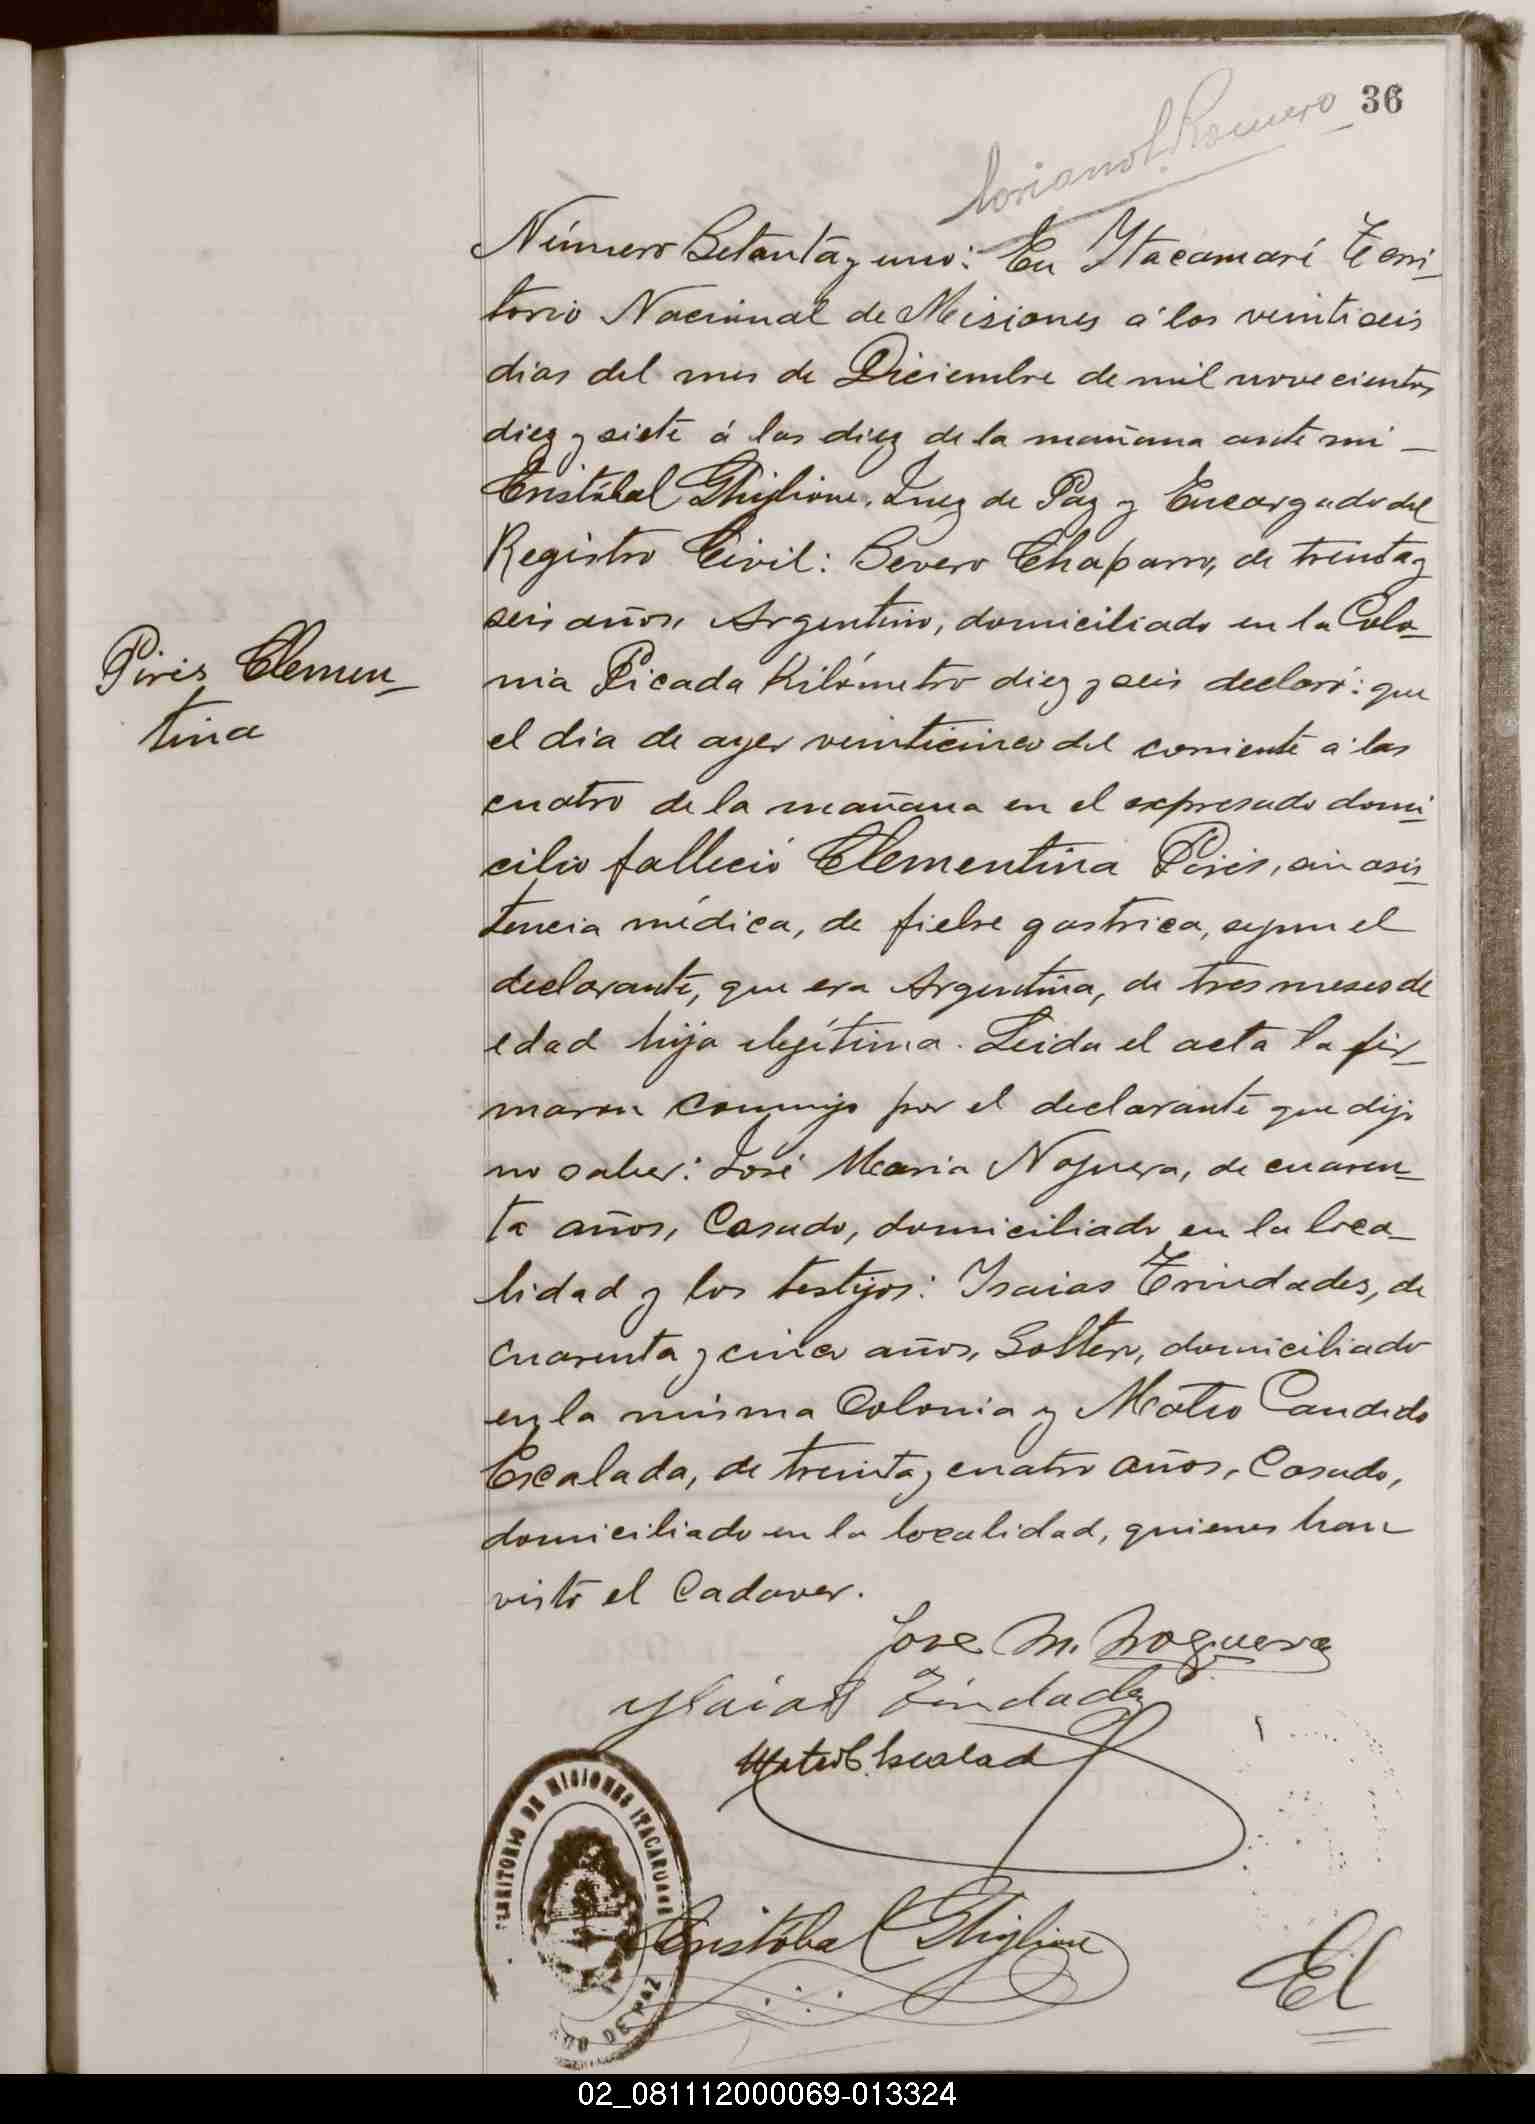 36
Número Setenta y uno: En Itacaruaré Terri-
torio Nacional de Misiones á los veintiseis
dias del mes de Diciembre de mil novecientos
diez y siete á las diez de la mañana ante mi -
Cristóbal Ghiglione, Juez de Paz y Encargado del
Registro Civil: Severo Chaparro, de treinta y
seis años, Argentino, domiciliado en la Colo-
nia Picada Kilómetro diez y seis declaró: que
el dia de ayer veinticinco del corriente á las
cuatro de la mañana en el expresado domi-
cilio falleció Clementina Piris, sin asis-
tencia médica, de fiebre gastrica, segun el
declarante, que era Argentina, de tres meses de
edad hija ilegítima. Leida el acta la fir-
maron conmigo por el declarante que dijo
no saber: José Maria Noguera, de cuaren-
ta años, Casado, domiciliado en la loca-
lidad y los testigos: Isaias Trindades, de
cuarenta y cinco años, Soltero, domiciliado
en la misma Colonia y Mateo Candido
Escalada, de treinta y cuatro años, Casado,
domiciliado en la localidad, quienes han
visto el Cadaver.
Piris Clemen-
tina
Jose M. Noguera
Mateo C. Escalada
Cristóbal Ghiglione
El
TERRITORIO DE MISIONES ITACARUARE
DE PAZ
02_081112000069-013324